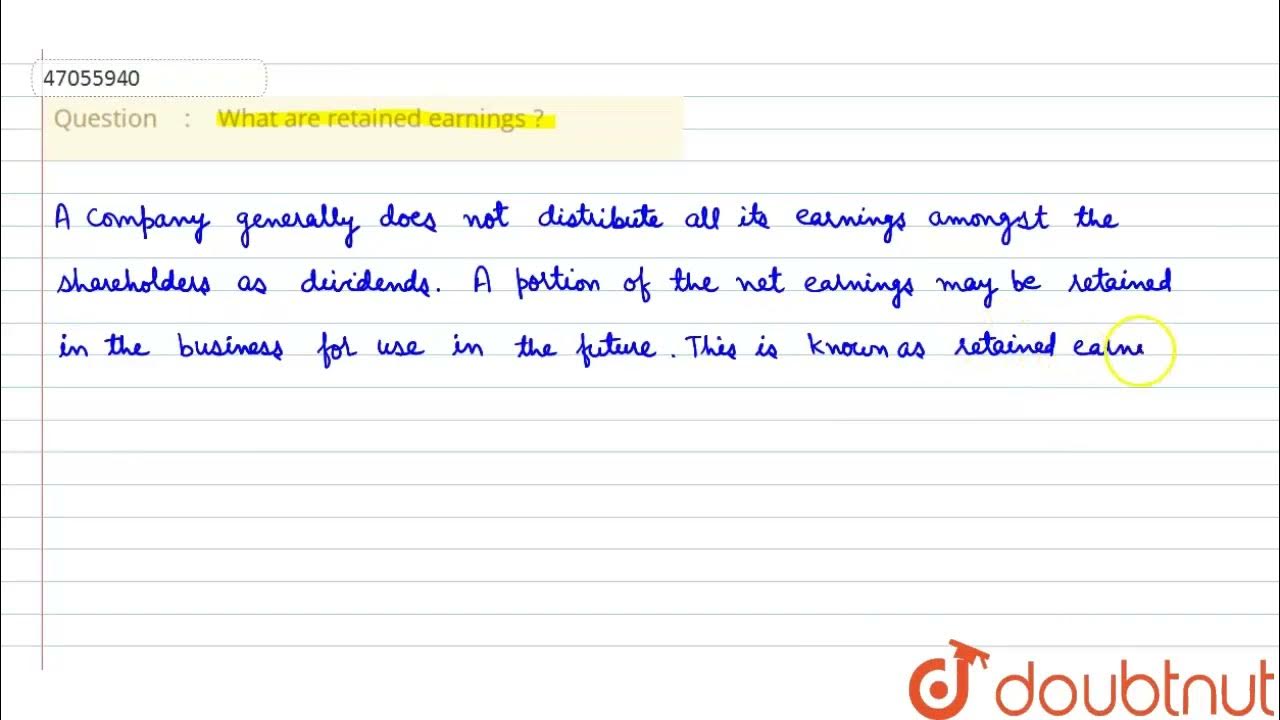 47055940
Question : What are retained earnings ?
A company generally does not distribute all its earnings amongst the
shareholders as dividends. A portion of the net earnings may be retained
in the business for use in the future. This is known as retained earni
doubtnut